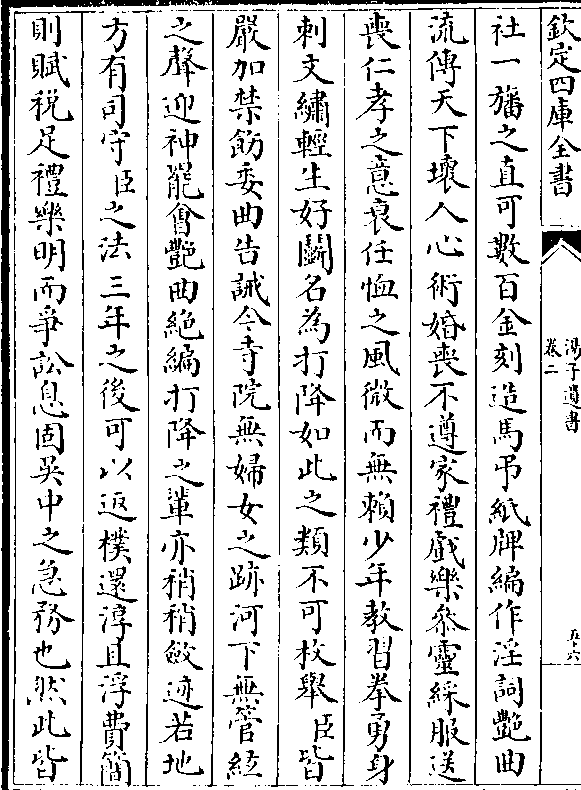 欽定四庫全書
湯子遺書
卷二
五六
社一旛之直可數百金刻造馬弔紙牌編作淫詞艷曲
流傳天下壞人心術婚喪不遵家禮戲樂叅靈綵服送
喪仁孝之意衰任恤之風微而無賴少年教習拳勇身
刺文繡輕生好鬭名為打降如此之類不可枚舉臣皆
嚴加禁飭委曲告誡今寺院無婦女之跡河下無管絃
之聲迎神罷會艷曲絶編打降之輩亦稍稍斂迹若地
方有司守臣之法三年之後可以返樸還淳且浮費簡
則賦税足禮樂明而爭訟息固吳中之急務也然此皆